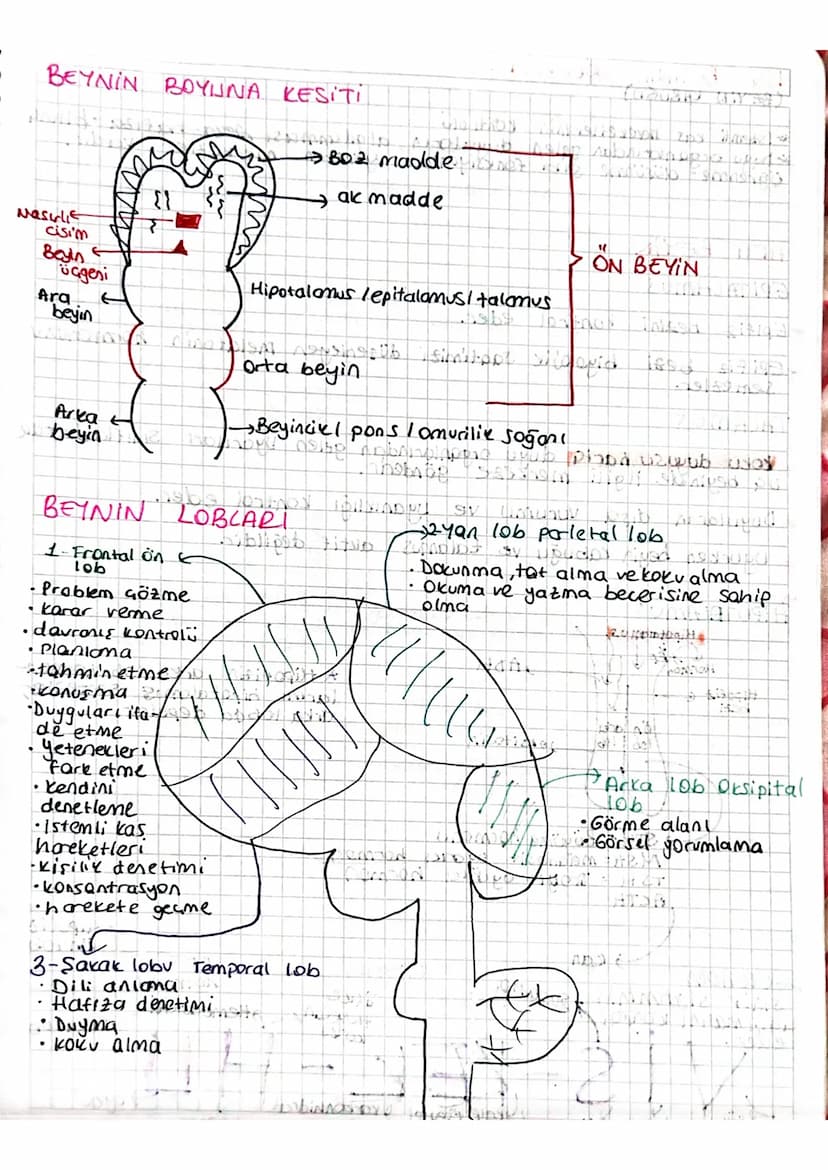 BEYNİN BOYUNA KESİTİ
Boz madde
ak madde
Nasırlı
cisim
Beyin
üçgeni
ÖN BEYİN
Ara
beyin
Hipotalamus / epitalamus / talamus
Orta beyin
Arka
beyin
Beyincik / pons / omurilik soğanı
BEYNİN LOBLARI
1-Frontal ön
lob
• Problem çözme
• karar verme
• davranış kontrolü
• Planlama
• tahmin etme
• konuşma
• Duyguları ifa-
de etme
• Yetenekleri
Fark etme
• Kendini
denetleme
• Istemli kas
hareketleri
• kişilik denetimi
• konsantrasyon
• harekete geçme
2-Yan lob parietal lob
• Dokunma, tat alma ve koku alma
• Okuma ve yazma becerisine sahip
olma
Arka lob Oksipital
lob
• Görme alanı
• Görsel yorumlama
3-Şakak lobu Temporal lob
• Dili anlama
• Hafıza denetimi
• Duyma
• koku alma